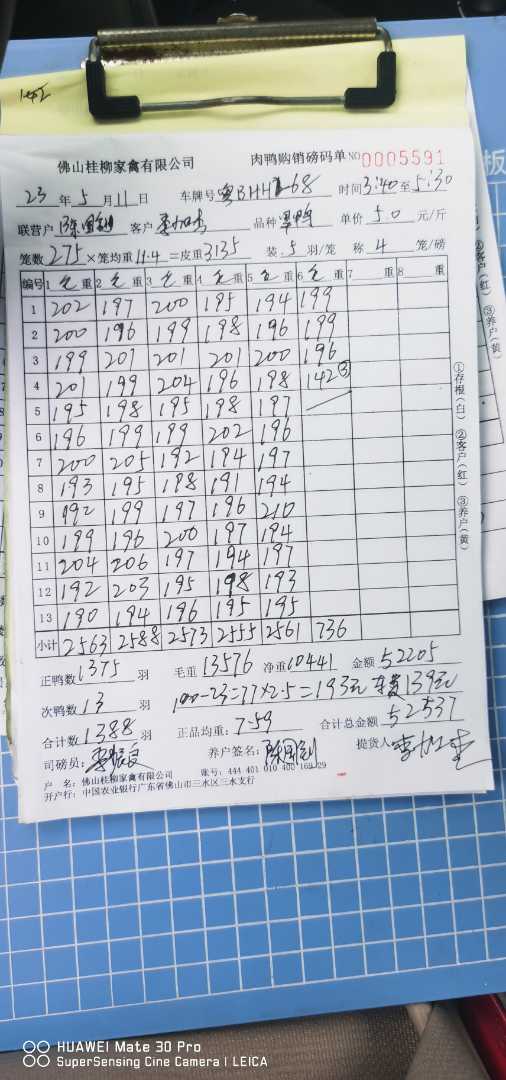 佛山桂柳家禽有限公司 肉鸭购销磅码单 NO 0005591
23 年 5 月 11 日 车牌号 时间 3:40 至 5:30
联营户 客户 品种 单价 5.0 元/斤
笼数 275 × 笼均重 11.4 = 皮重 3135 装 5 羽/笼 称 4 笼/磅
编号 1 毛 重 2 毛 重 3 毛 重 4 毛 重 5 毛 重 6 毛 重 7 重 8 重
1 202 197 200 195 194 199
2 200 196 199 198 196 199
3 199 201 201 201 200 196
4 201 199 204 196 198 142 ③
5 195 198 195 198 197
6 196 199 199 202 196
7 200 205 192 184 197
8 193 195 188 191 194
9 192 199 197 196 210
10 199 196 200 197 194
11 204 206 197 194 197
12 192 203 195 198 193
13 190 194 196 195 195
小计 2563 2588 2573 2555 2561 736
正鸭数 1375 羽 毛重 13576 净重 10441 金额 52205
次鸭数 13 羽 100-23=77×2.5=193元 139元
合计数 1388 羽 正品均重: 7.59 合计总金额 52537
司磅员: 养户签名: 提货人:
户 名: 佛山桂柳家禽有限公司 账号: 444 401 010 400 169 29
开户行: 中国农业银行广东省佛山市三水区三水支行
①存根(白) ②客户(红) ③养户(黄)
HUAWEI Mate 30 Pro
SuperSensing Cine Camera | LEICA